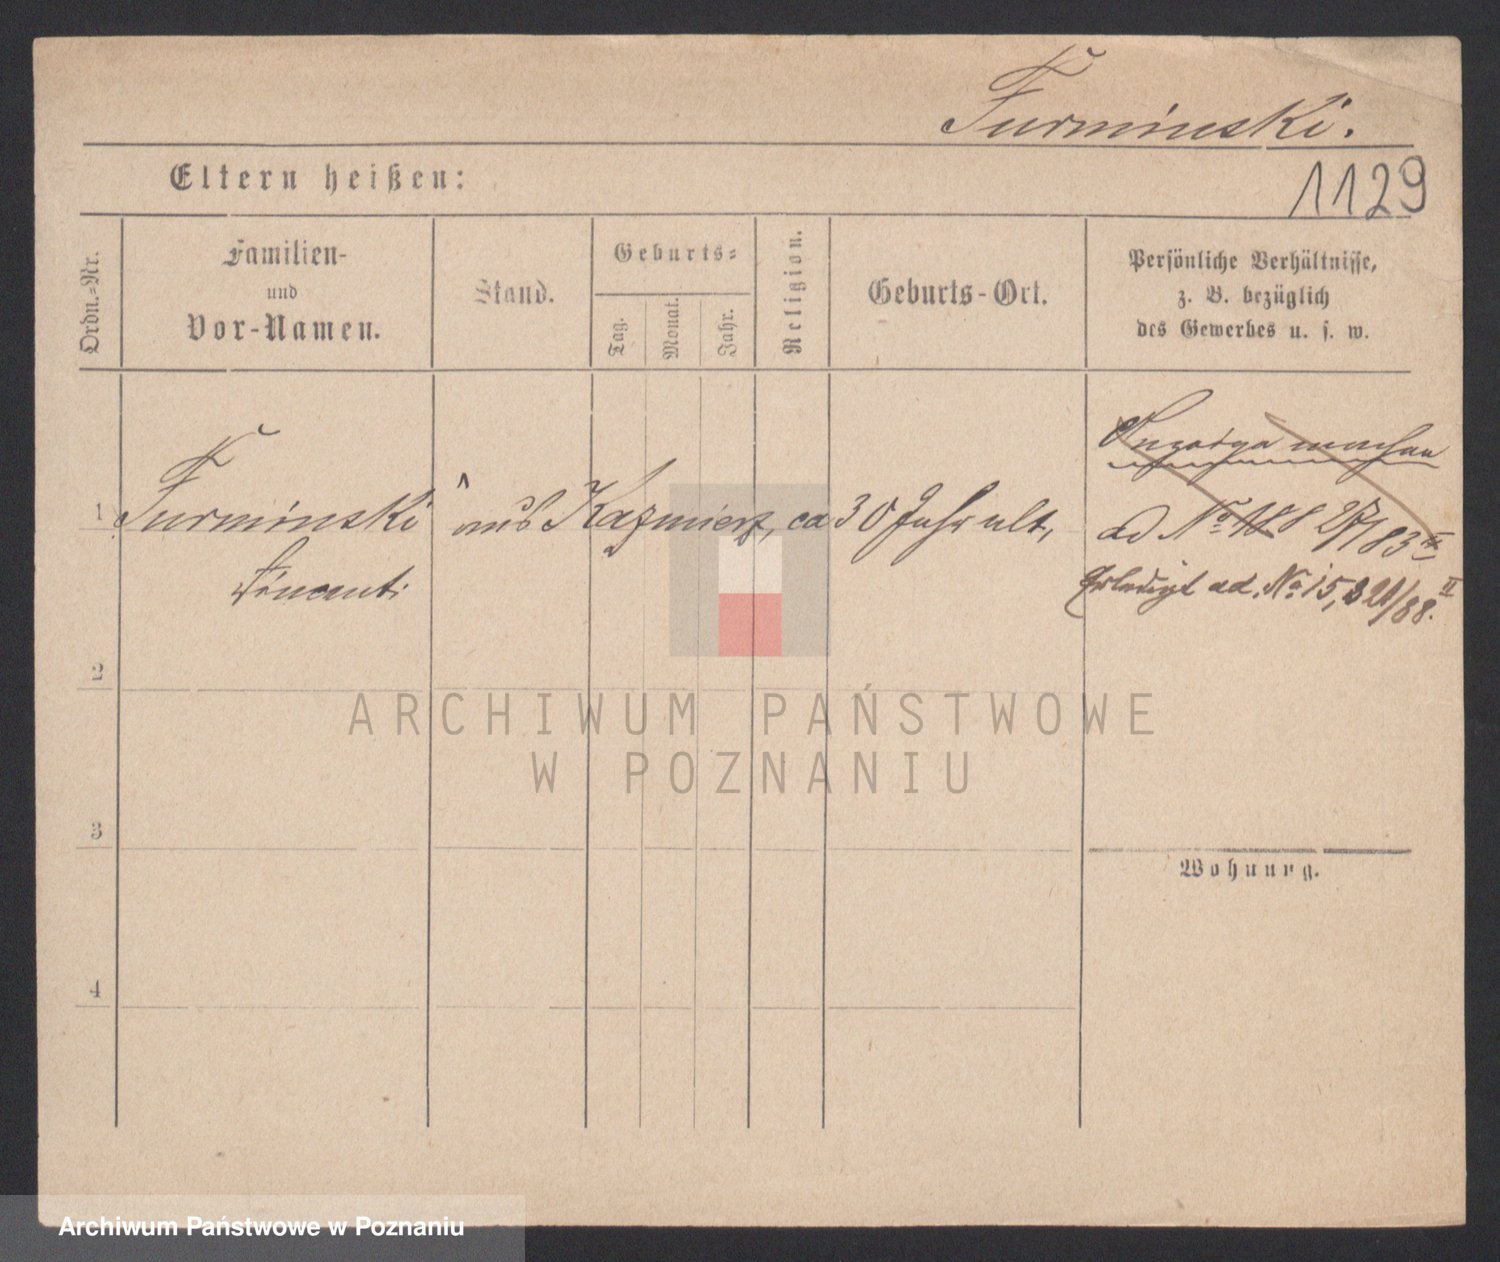 Furminski.
Eltern heißen:
1129
Ordn.-Nr.
Familien-
und
Vor-Namen.
Stand.
Geburts-
Tag.
Monat.
Jahr.
Religion.
Geburts-Ort.
Persönliche Verhältnisse,
z. B. bezüglich
des Gewerbes u. s. w.
Anzeige machen
1 Furminski aus Kazmierz, ca 30 Jahr alt,
ad No 188 27/1 83
Vincent
Erledigt ad. No 15,
2
ARCHIWUM PAŃSTWOWE
W POZNANIU
3
Wohnung.
4
Archiwum Państwowe w Poznaniu